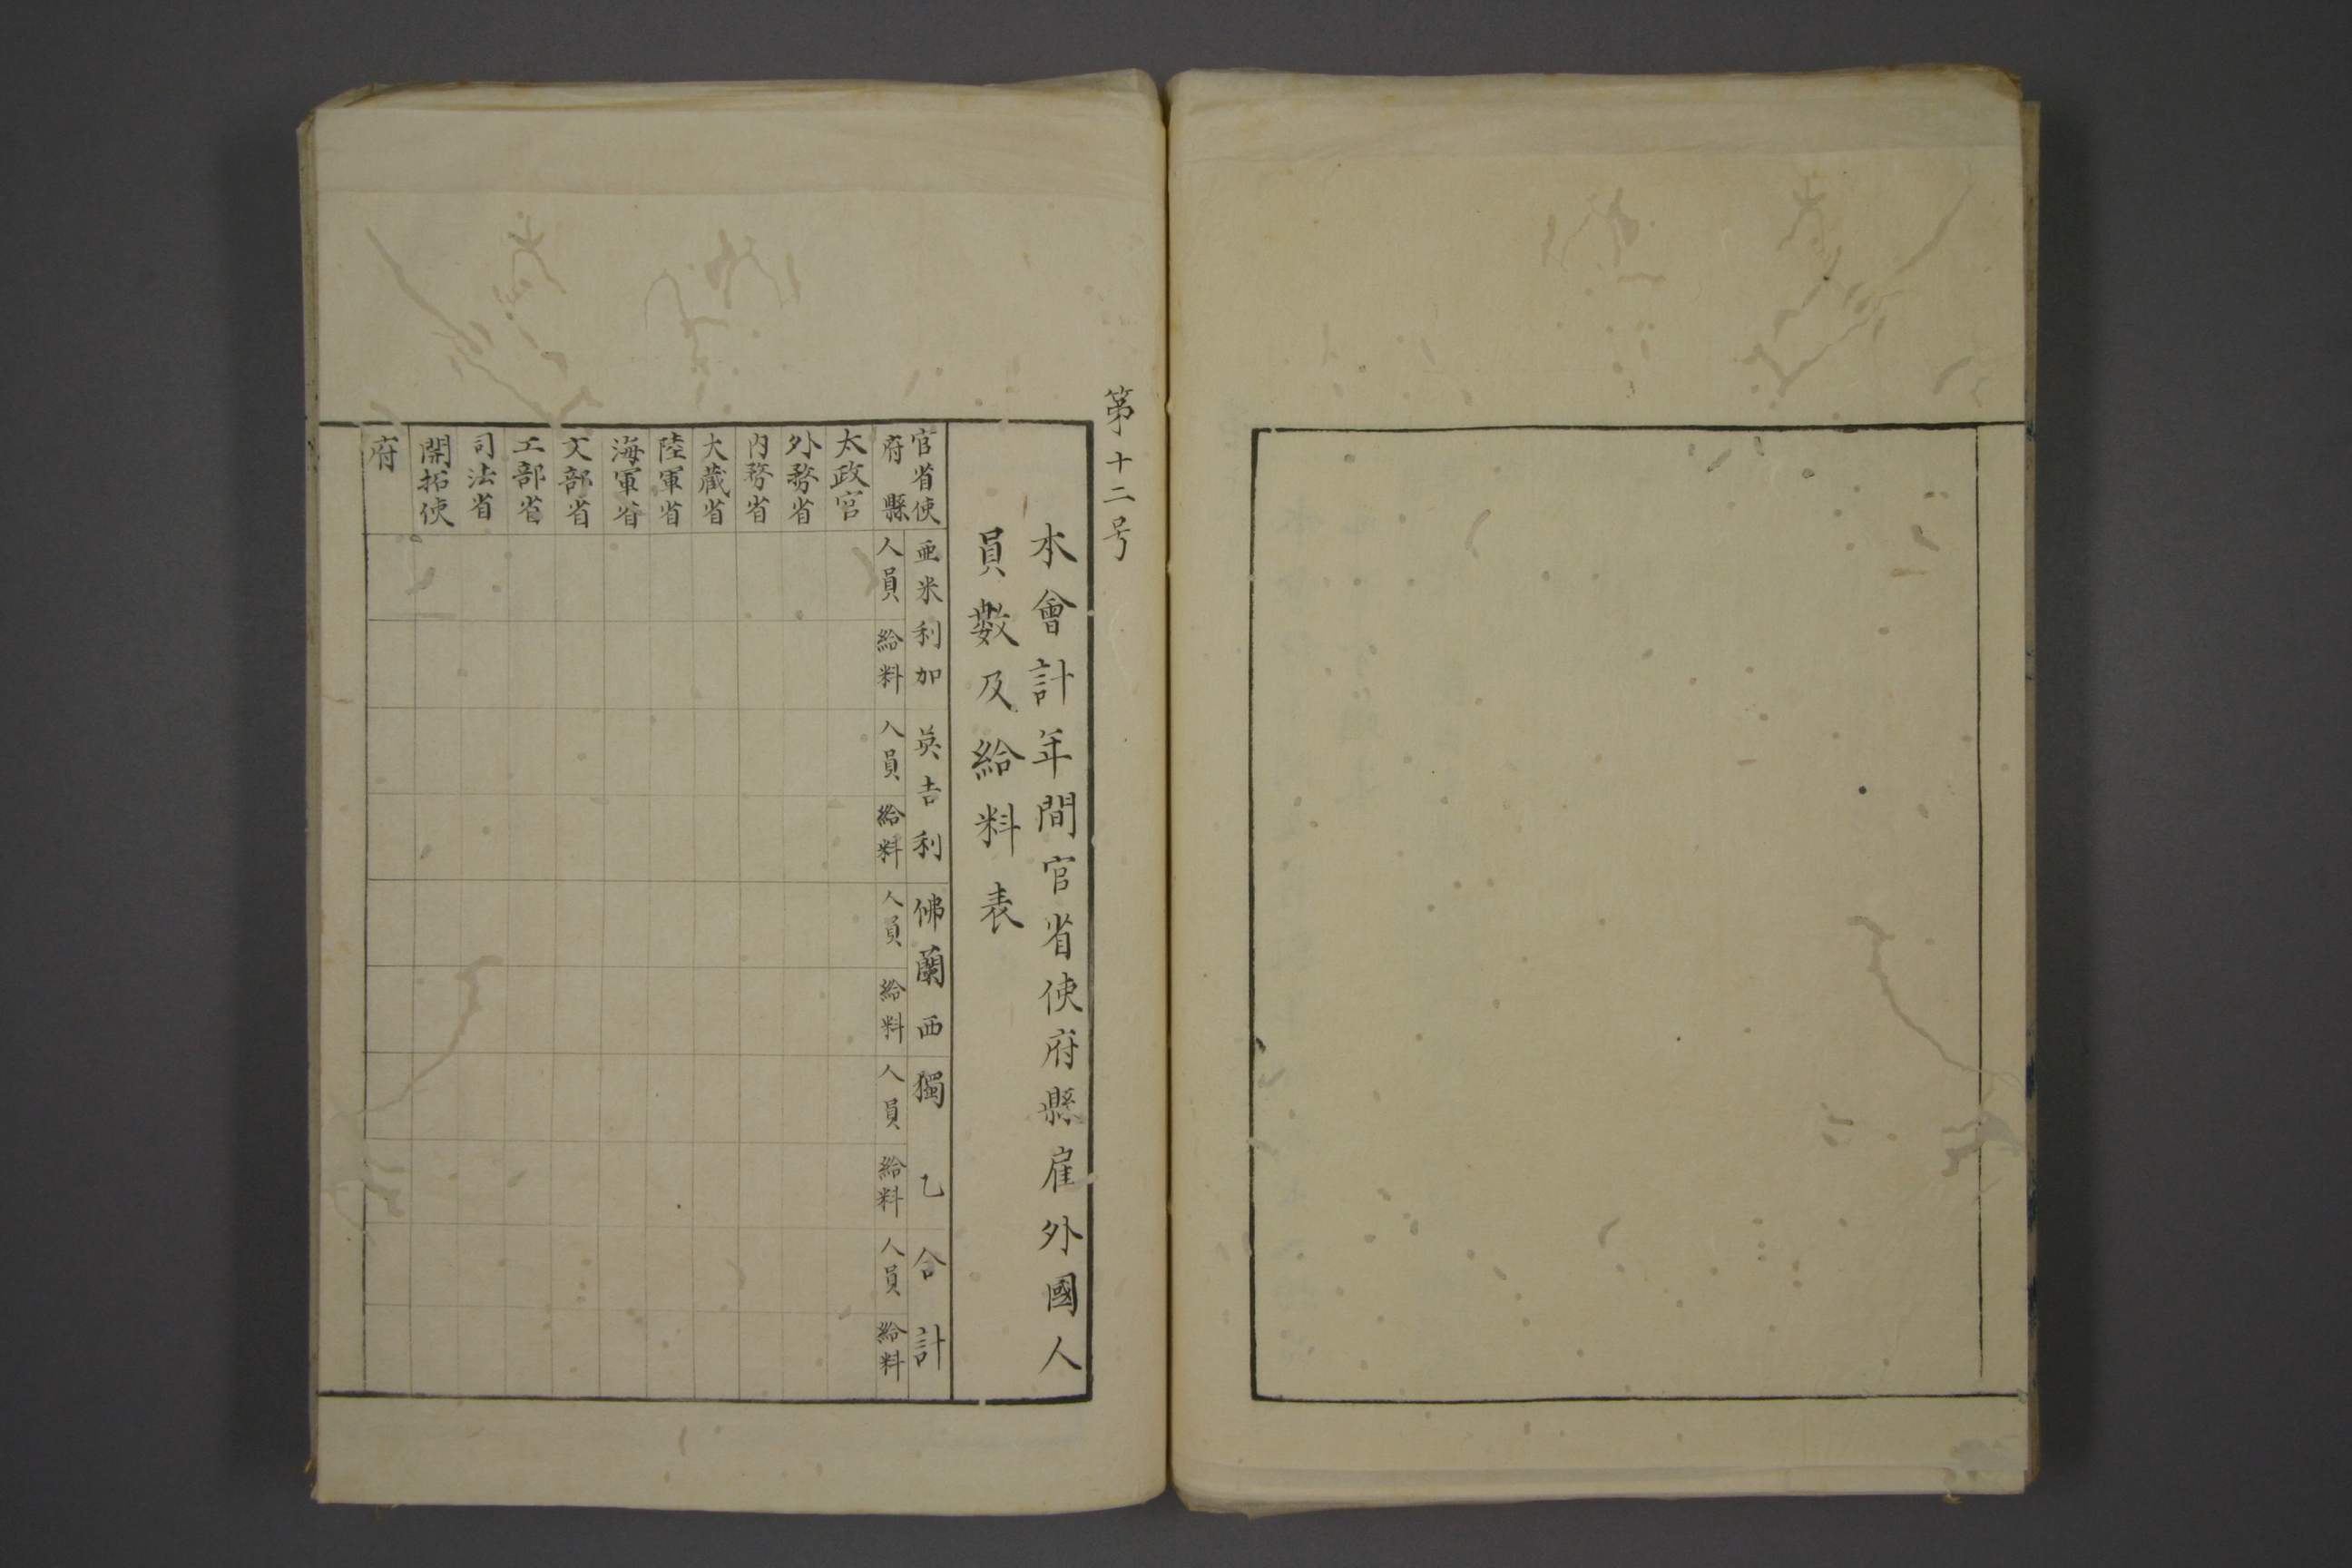 第十二号
本會計年間官省使府縣雇外國人
員數及給料表
官省使
府縣
亜米利加
英吉利
佛蘭西
獨乙
合計
人員
給料
人員
給料
人員
給料
人員
給料
人員
給料
太政官
外務省
内務省
大蔵省
陸軍省
海軍省
文部省
工部省
司法省
開拓使
府